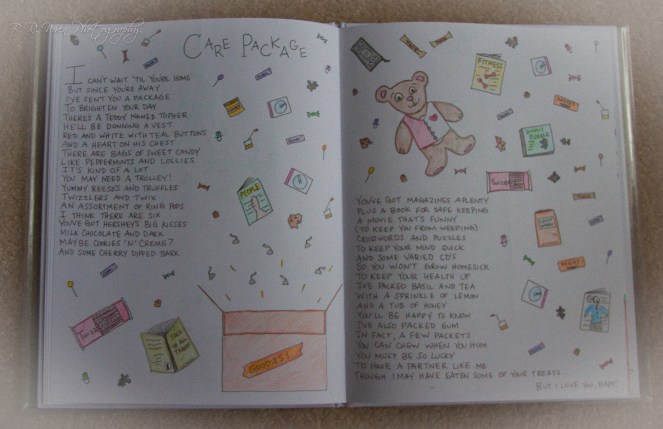 Care Package
I can't wait 'til you're home
But since you're away
I've sent you a package
To brighten your day
There's a teddy named Topher
He'll be donning a vest
Red and white with teal buttons
And a heart on his chest
There are bags of sweet candy
Like peppermints and lollies
It's kind of a lot
You may need a trolley!
Yummy Reeses and truffles
Twizzlers and Twix
An assortment of Ring Pops
I think there are six
You've got Hershey's big kisses
Milk chocolate and dark
Maybe cookies 'n' creme?
And some cherry dipped bark
PEOPLE
GOODIES!
FITNESS
You've got magazines aplenty
Plus a book for safe keeping
A movie that's funny
(To keep you from weeping)
Crosswords and puzzles
To keep your mind quick
And some varied CD's
So you won't grow homesick
To keep your health up
I've packed basil and tea
With a sprinkle of lemon
And a tub of honey
You'll be happy to know
I've also packed gum
In fact, a few packets
You can chew when you hum
You must be so lucky
To have a partner like me
Though I may have eaten some of your treats...
But I love you, baby!
GQ